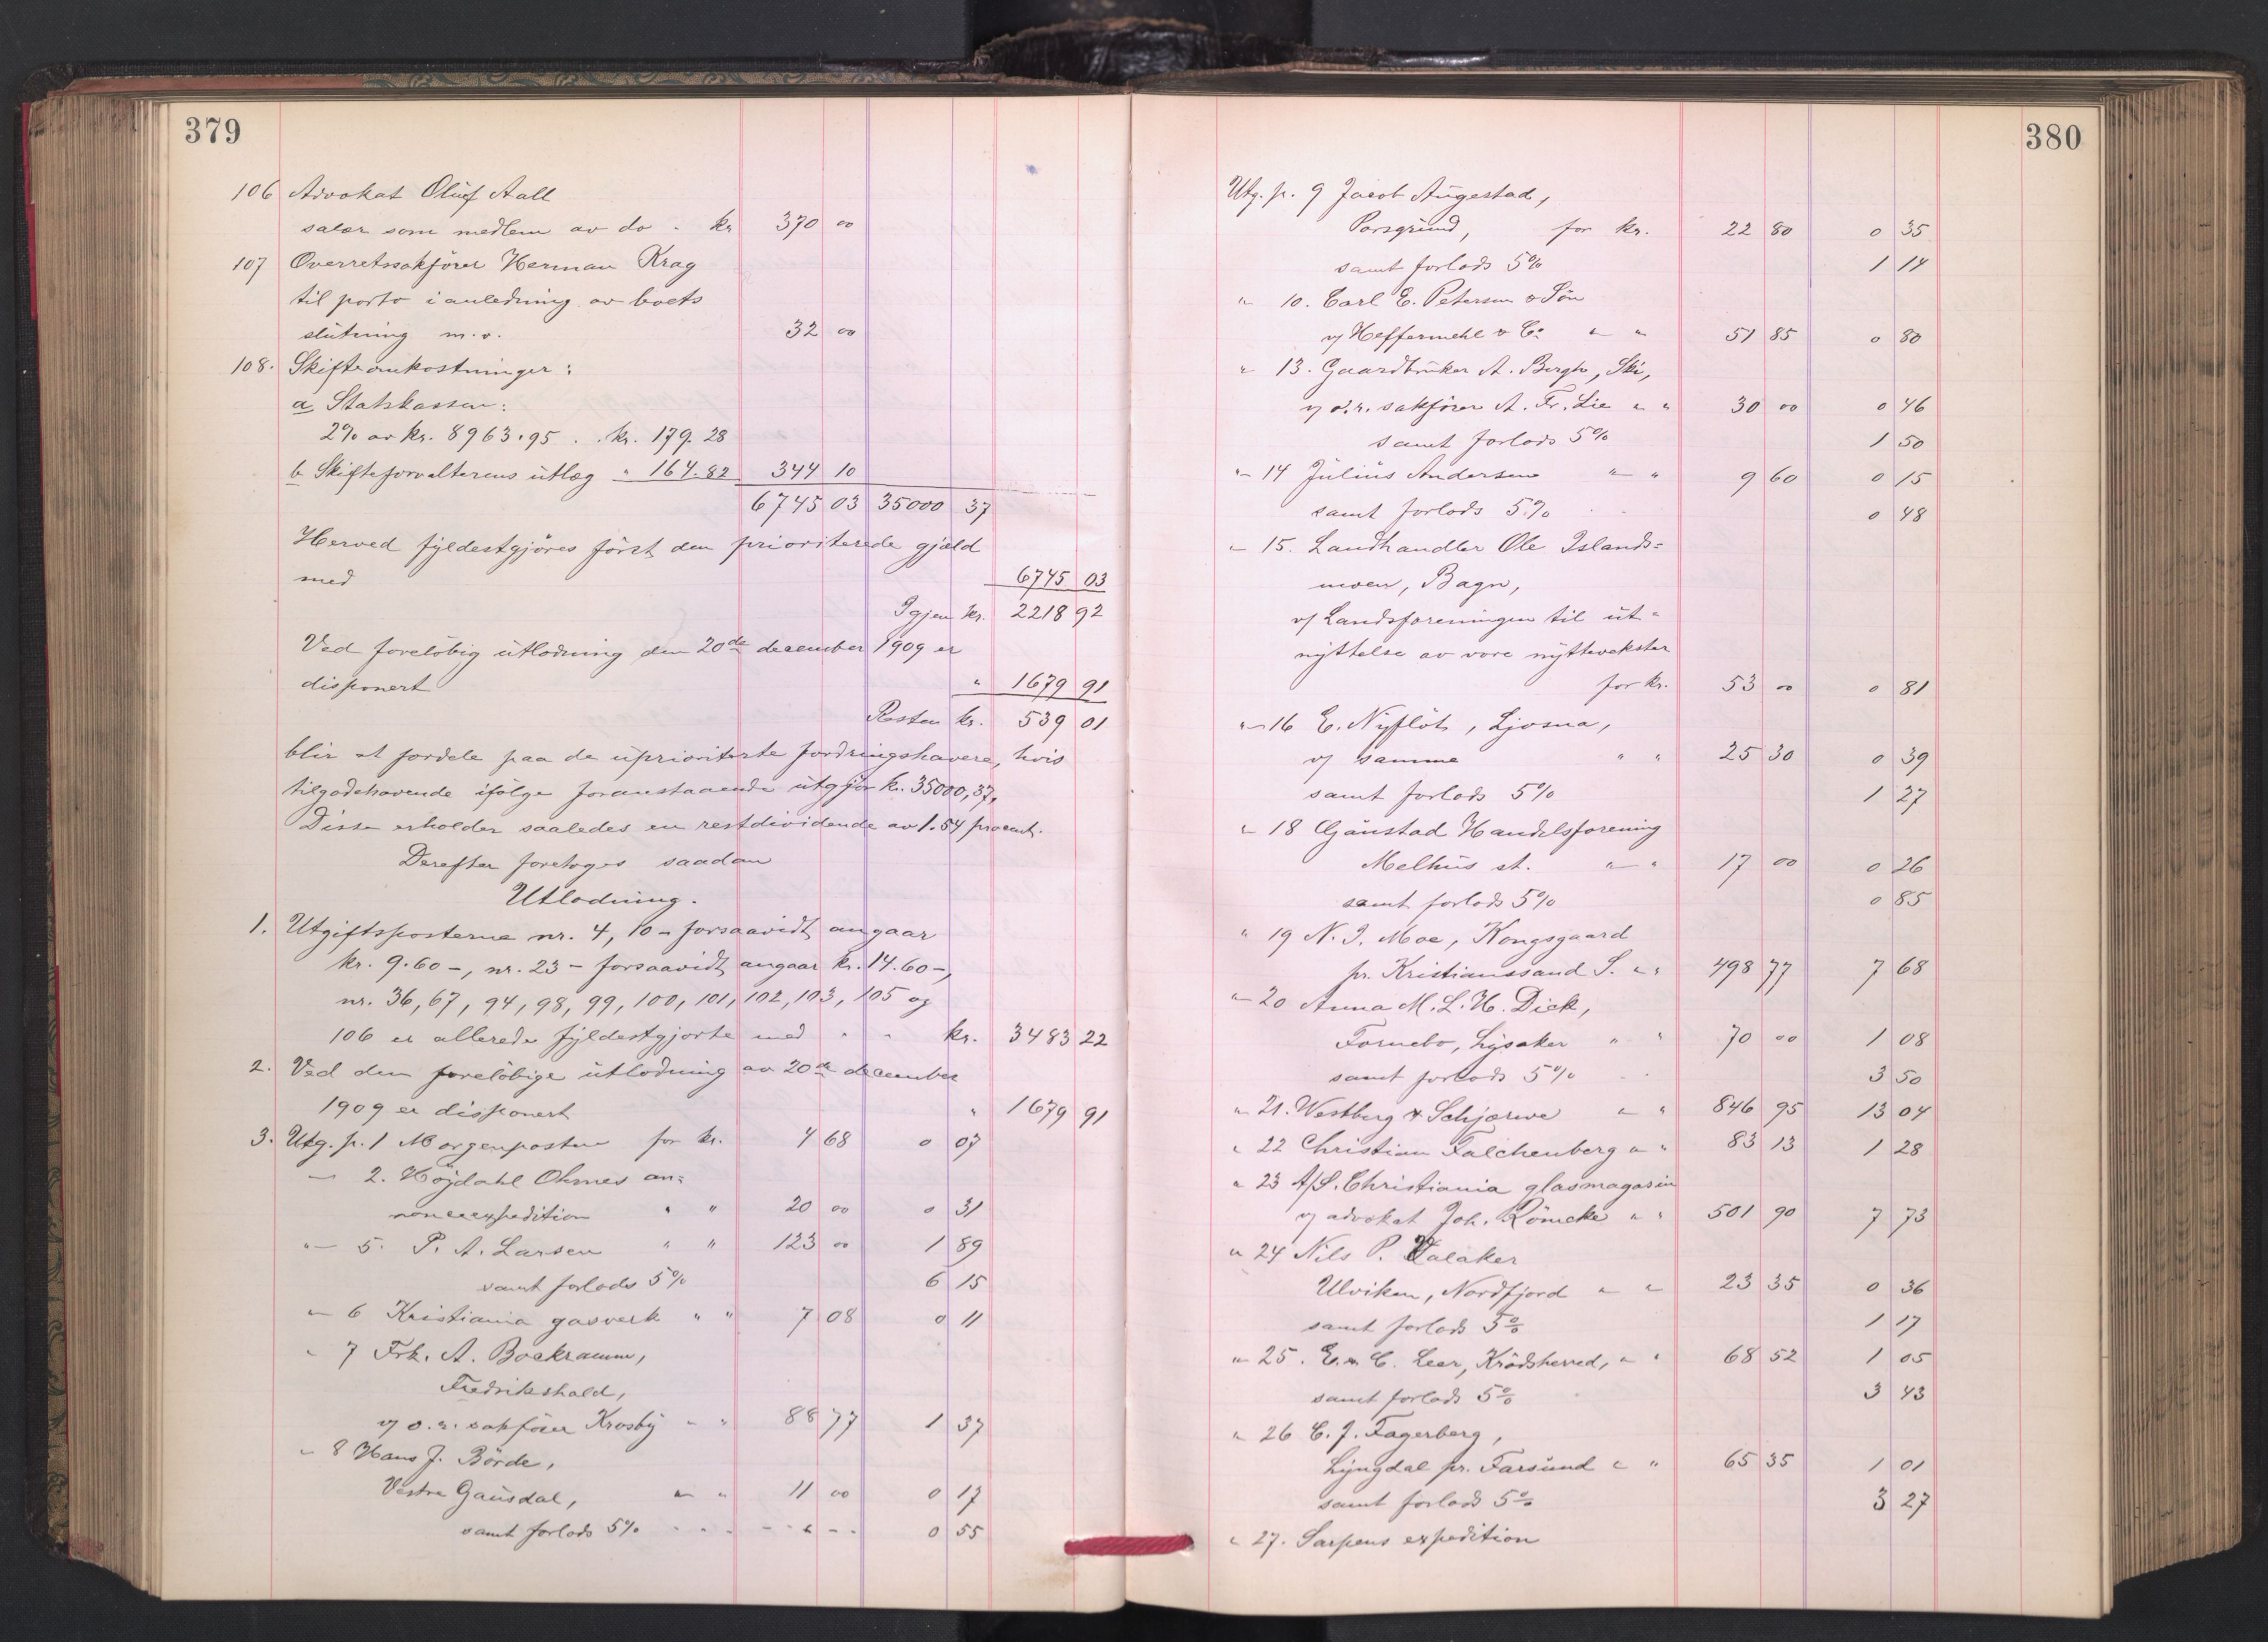 379
106 Advokat Oluf Aall
salær som medlem av do - kr 370 00
107 Overretssakfører Herman Krag
til porto i anledning av boets
slutning m.v. 32 00
108. Skifteomkostninger:
a Statskassen:
2% av kr. 8963.95 . . kr. 179.28
b Skifteforvalterens utlæg " 164.82 344 10
6745 03 35000 37
Herved fyldestgjöres först den prioriterede gjæld
med 6745 03
Igjen kr. 2218 92
Ved forelöbig utlodning den 20de december 1909 er
disponert " 1679 91
Resten kr. 539 01
blir at fordele paa de uprioriterte fordringshavere, hvis
tilgodehavende ifölge foranstaaende utgjör kr. 35000,37.
Disse erholder saaledes en restdividende av 1.54 procent.
Derefter foretoges saadan
Utlodning.
1. Utgiftsposterne nr. 4, 10 - forsaavidt angaar
kr. 9.60 -, nr. 23 - forsaavidt angaar kr. 14.60 -,
nr. 36, 67, 94, 98, 99, 100, 101, 102, 103, 105 og
106 er allerede fyldestgjorte med " " kr. 3483 22
2. Ved den forelöbige utlodning av 20de december
1909 er disponert " 1679 91
3. Utg. p. 1 Morgenposten for kr. 4 68 0 07
" 2. Höjdahl Ohmes an=
nonceexpedition " " 20 00 0 31
" 5. P. A. Larsen " " 123 00 1 89
samt forlods 5% 6 15
" 6 Kristiania gasverk " " 7 08 0 11
" 7 Frk. A. Bockramm,
Fredrikshald,
v/ o.r. sakfører Krosby " " 88 77 1 37
" 8 Hans J. Börde,
Vestre Gausdal, " " 11 00 0 17
samt forlods 5% - - - - - " - - 0 55
380
Utg. p. 9 Jacob Augestad,
Porsgrund, for kr. 22 80 0 35
samt forlods 5% 1 14
" 10. Carl E. Petersen & Sön
v/ Heffermehl & Co " " 51 85 0 80
" 13. Gaardbruker A. Bergh, Ski,
v/ o.r. sakfører A. Fr. Lie " " 30 00 0 46
samt forlods 5% 1 50
" 14 Julius Andersen " " 9 60 0 15
samt forlods 5% 0 48
" 15. Landhandler Ole Islands=
moen, Bagn,
v/ Landsforeningen til ut=
nyttelse av vore nyttevekster
for kr. 53 00 0 81
" 16 E. Nyflöt, Ljosna,
v/ samme " " 25 30 0 39
samt forlods 5% 1 27
" 18 Gånstad Handelsforening
Melhus st. " " 17 00 0 26
samt forlods 5% 0 85
" 19 N. J. Moe, Kongsgaard
pr. Kristianssand S. " " 498 77 7 68
" 20 Anna M. L. H. Dick,
Fornebo, Lysaker " " 70 00 1 08
samt forlods 5% 3 50
" 21. Westberg & Schjærve " " 846 95 13 04
" 22 Christian Falchenberg " " 83 13 1 28
" 23 A/S. Christiania glasmagasin
v/ advokat Joh. Römcke " " 501 90 7 73
" 24 Nils P. Valaker
Ulviken, Nordfjord " " 23 35 0 36
samt forlods 5% 1 17
" 25. E. & C. Leer, Krödsherred, " " 68 52 1 05
samt forlods 5% 3 43
" 26 C. J. Fagerberg,
Lyngdal pr. Farsund " " 65 35 1 01
samt forlods 5% 3 27
" 27. Sarpens expedition